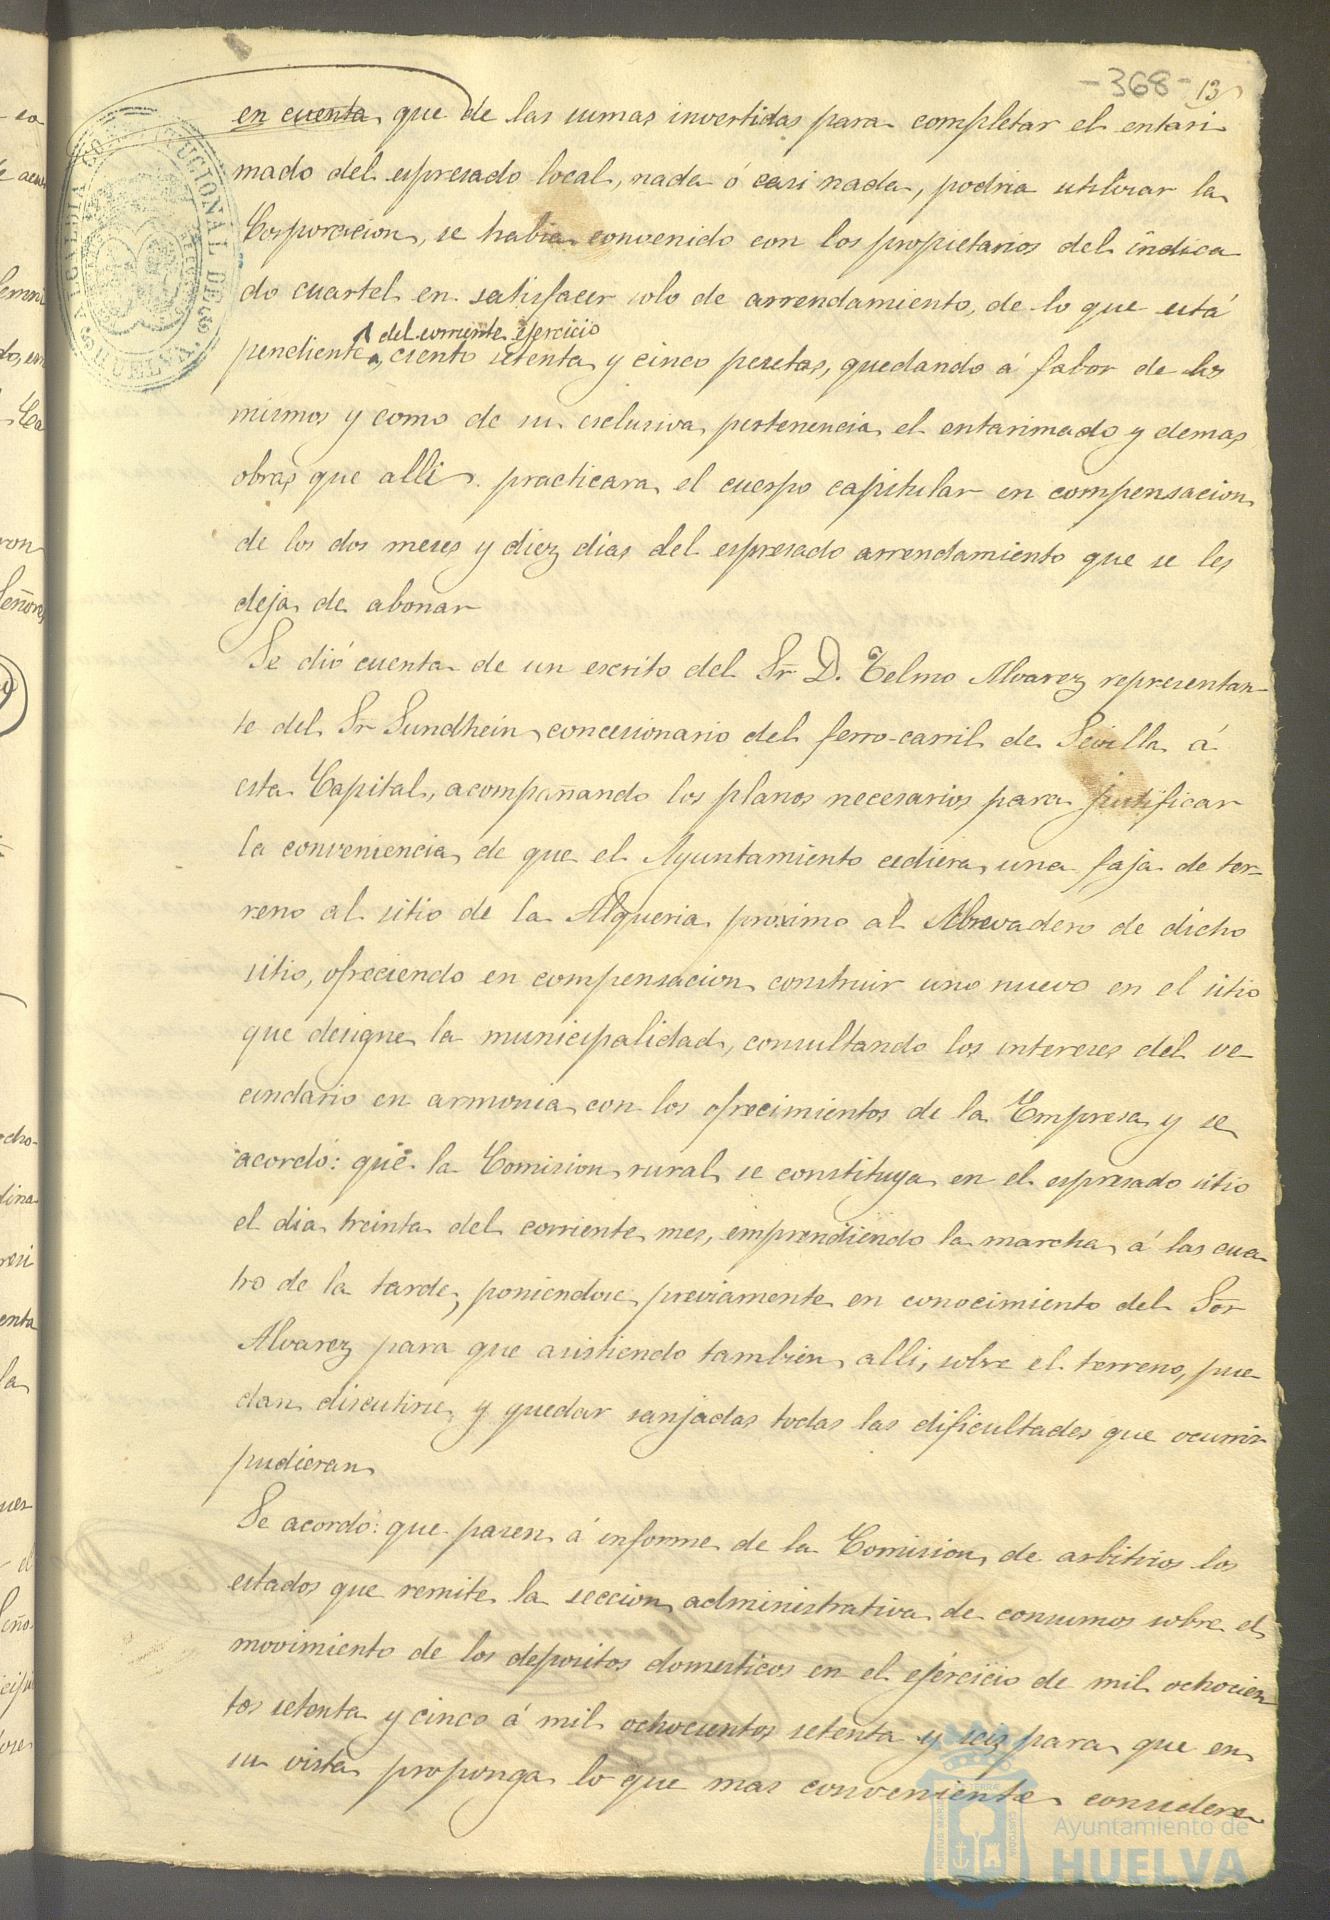 -368- 13
en cuenta que de las sumas invertidas para completar el entari
mado del espresado local, nada ó casi nada, podria utilizar la
Corporacion, se habia convenido con los propietarios del indica
do cuartel en satisfacer solo de arrendamiento, de lo que está
del corriente ejercicio
pendiente, ciento setenta y cinco pesetas, quedando á fabor de los
mismos y como de su esclusiva pertenencia el entarimado y demas
obras que alli practicara el cuerpo capitular en compensacion
de los dos meses y diez dias del espresado arrendamiento que se les
deja de abonar
Se dió cuenta de un escrito del Sr. D. Telmo Alvarez representan-
te del Sr Sundhein concesionario del ferro-carril de Sevilla á
esta Capital, acompañando los planos necesarios para justificar
la conveniencia de que el Ayuntamiento cediera una faja de ter-
reno al sitio de la Alqueria próximo al Abrevadero de dicho
sitio, ofreciendo en compensacion construir uno nuevo en el sitio
que designe la municipalidad, consultando los intereses del ve
cindario en armonia con los ofrecimientos de la Empresa y se
acordó: que la Comision rural se constituya en el espresado sitio
el dia treinta del corriente mes, emprendiendo la marcha á las cua-
tro de la tarde, poniendose previamente en conocimiento del Sor
Alvarez para que asistiendo tambien alli, sobre el terreno, pue-
dan discutirse y quedar sanjadas todas las dificultades que ocurrir
pudieran
Se acordó: que pasen á informe de la Comision de arbitrios los
estados que remite la seccion administrativa de consumos sobre el
movimiento de los depositos domesticos en el ejercicio de mil ochocien
tos setenta y cinco á mil ochocientos setenta y seis para que en
su vista proponga lo que mas conveniente considere
ALCALDIA CO TUCIONAL DE
HUELVA
PORTUS MARIS ET TERRAE CUSTODIA
Ayuntamiento de
HUELVA